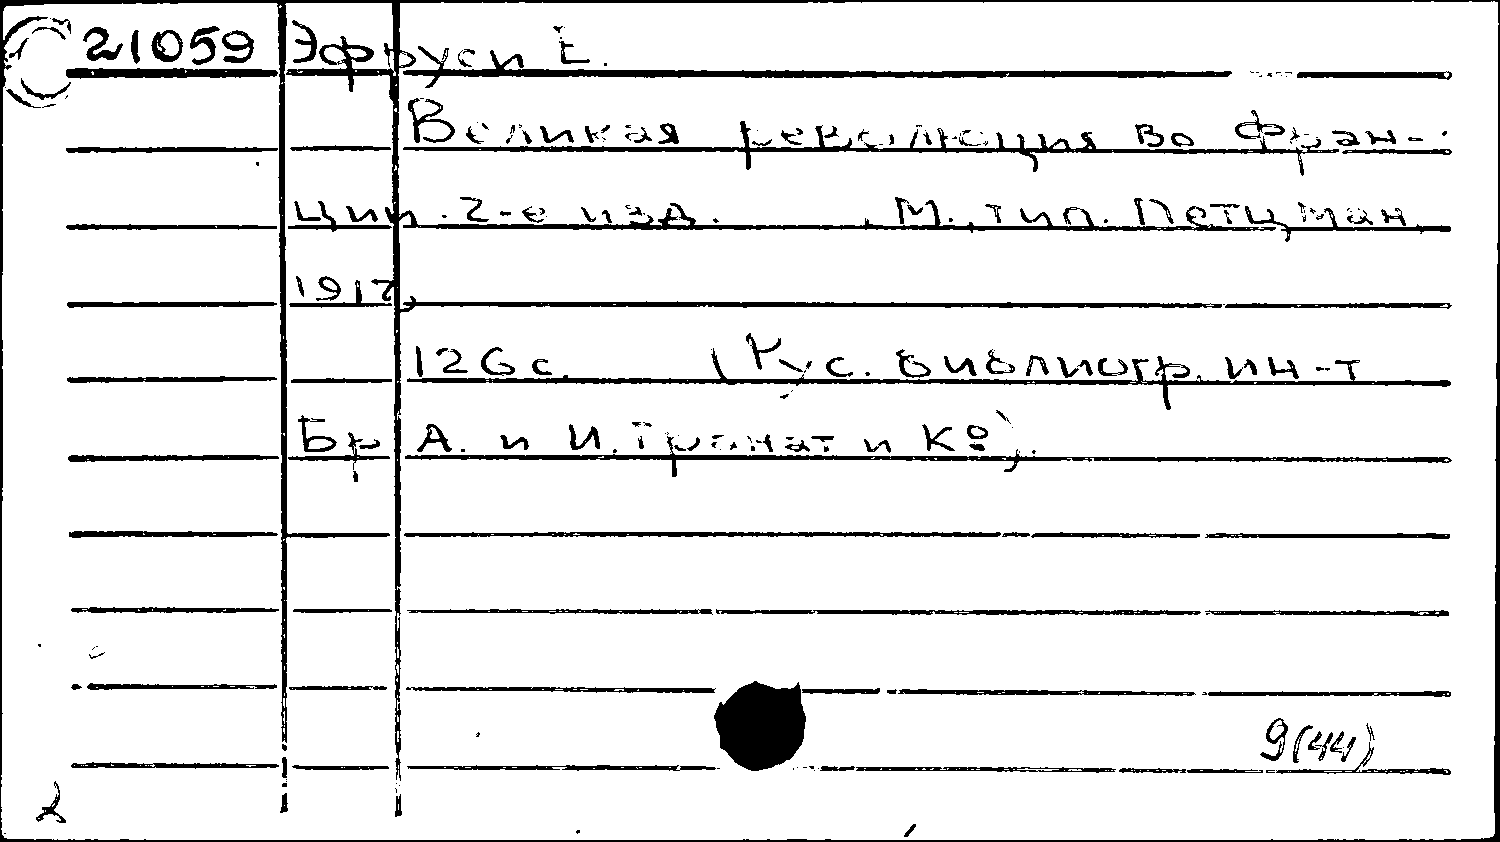 21059 Эфруси Е.
Великая революция во Фран-
ции. 2-е изд. , М., тип. Петцман,
1917,
126 с. (Рус. библиогр. ин-т
Бр А. и И. Гранат и Кº).
9(44)
2